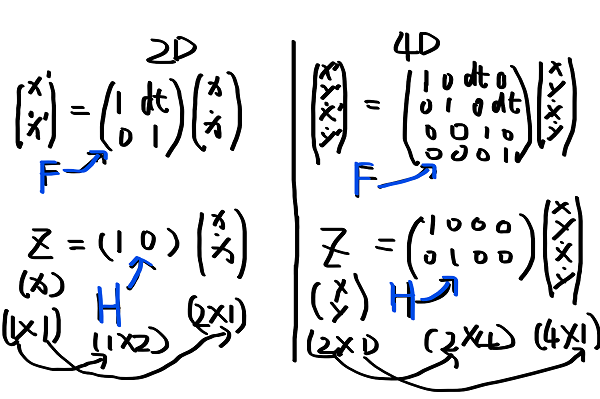 2D
(x' ẋ') = (1 dt 0 1) (x ẋ)
F
Z = (1 0) (x ẋ)
(x)
H
(1×1) (1×2) (2×1)
4D
(x' y' ẋ' ẏ') = (1 0 dt 0 0 1 0 dt 0 0 1 0 0 0 0 1) (x y ẋ ẏ)
F
Z = (1 0 0 0 0 1 0 0) (x y ẋ ẏ)
(x y)
H
(2×1) (2×4) (4×1)